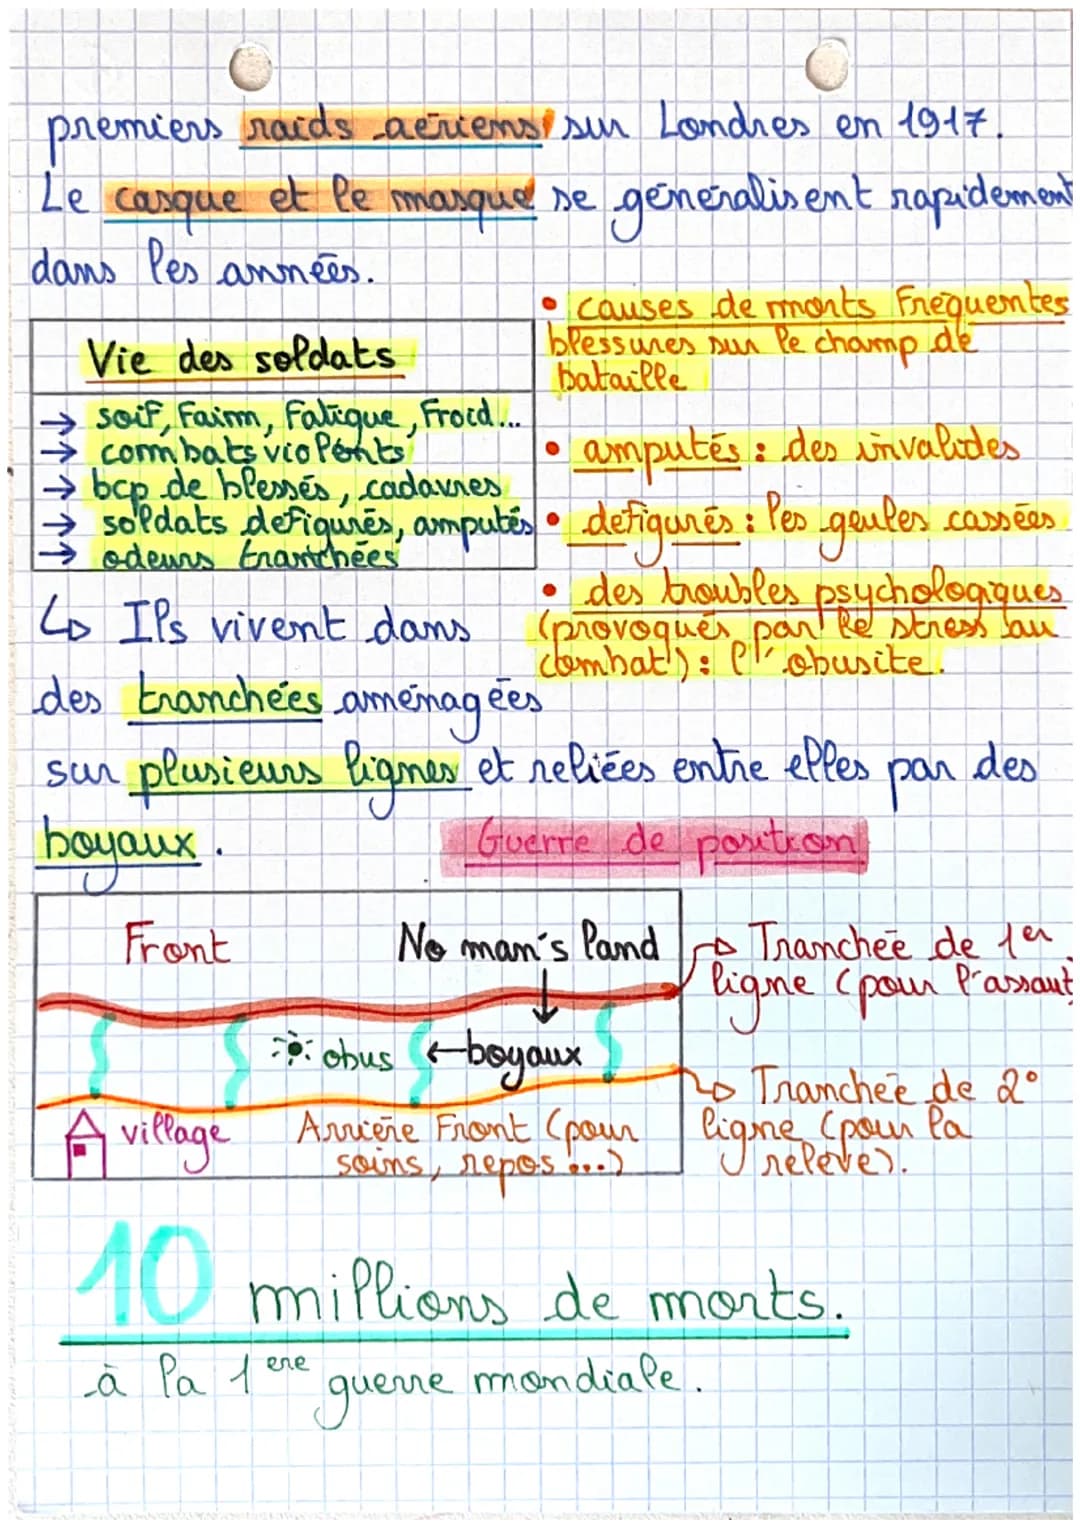 premiers raids aériens sur Londres en 1917.
Le casque et le masque se généralisent rapidement
dans les années.
Vie des soldats
→ soif, Faim, Fatigue, Froid...
→ combats violents
→ bcp de blessés, cadavres
→ soldats defigurés, amputés
→ odeurs tranchées
• causes de morts Fréquentes
blessures sur le champ de
bataille
• amputés : des invalides
• defigurés : les geules cassées
• des troubles psychologiques
(provoqués par le stress au
combat) : l'obusite.
↳ Ils vivent dans
des tranchées aménagées
sur plusieurs lignes et reliées entre elles par des
boyaux.
Guerre de position
Front
No man's land
→ Tranchée de 1er
ligne (pour l'assaut
obus
←boyaux
→ Tranchée de 2°
ligne (pour la
relève).
village
Arrière Front (pour
soins, repos...)
10 millions de morts.
à la 1ere guerre mondiale.